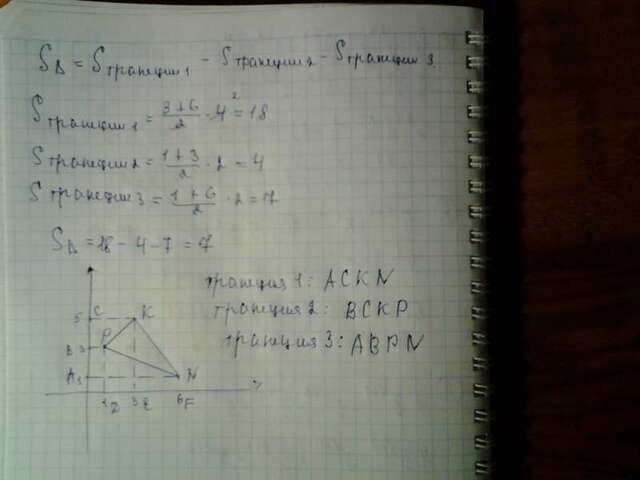 S△ = Sтрапеции 1 - Sтрапеции 2 - Sтрапеции 3
Sтрапеции 1 = (3+6)/2 · 4² = 18
Sтрапеции 2 = (1+3)/2 · 2 = 4
Sтрапеции 3 = (1+6)/2 · 2 = 7
S△ = 18 - 4 - 7 = 7
трапеция 1: ACKN
трапеция 2: BCKP
трапеция 3: ABPN
5 C K
B 3 P
A 1 N
1 3 6 F